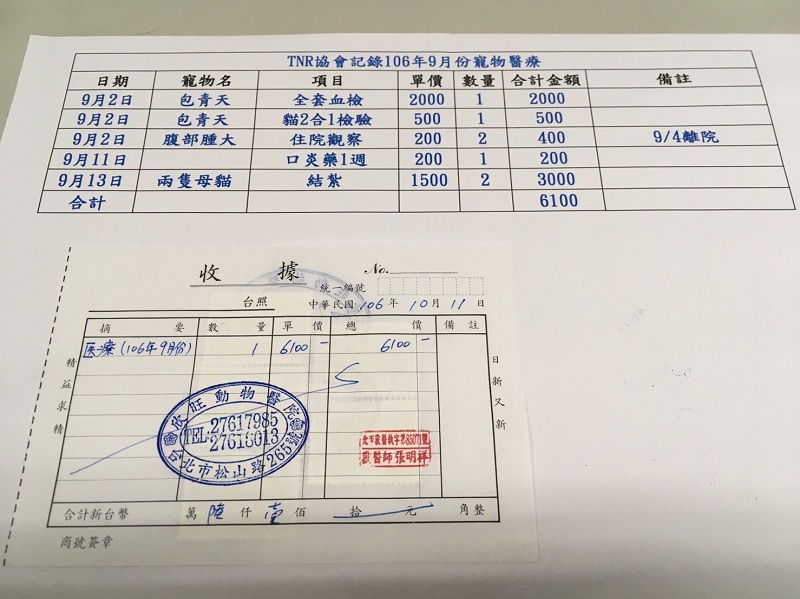 TNR協會記錄106年9月份寵物醫療
日期 寵物名 項目 單價 數量 合計金額 備註
9月2日 包青天 全套血檢 2000 1 2000
9月2日 包青天 貓2合1檢驗 500 1 500
9月2日 腹部腫大 住院觀察 200 2 400 9/4離院
9月11日 口炎藥1週 200 1 200
9月13日 兩隻母貓 結紮 1500 2 3000
合計 6100
收據 No.
統一編號
台照 中華民國 106 年 10 月 11 日
摘要 數量 單價 總價 備註
医療(106年9月份) 1 6100 － 6100 －
精益求精
日新又新
欣旺動物醫院
TEL:27617985
27618013
台北市松山路265號
獸醫師張明祥
合計新台幣 萬 陸 仟 壹 佰 拾 元 角整
商號簽章